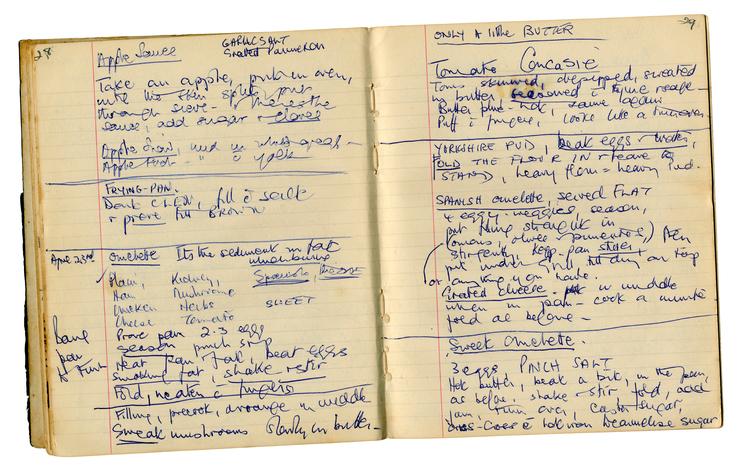 28
Apple Sauce
GARLIC SALT
Grated Parmesan
Take an apple, put in oven,
until the skin splits, put
through sieve - then is the
sauce, add sugar + cloves
Apple Snow, and whites
Apple yolk
FRYING-PAN.
Dont CLEAN, fill c̄ salt
+ prove till BROWN
April 23rd omelette Its the sediment in fat
which burns
Plain, Kidney, Spanish,
Ham Mushrooms
Chicken Herbs SWEET
Cheese Tomato
Prove pan 2-3 eggs
season pinch S+P
Heat pan, fat, beat eggs
smoking fat, shake + stir
Fold, neaten c̄ fingers
Filling, precook, arrange in middle
Sweat mushrooms slowly in butter -
pan
29
ONLY A little BUTTER
Tomato Concasse
Toms skinned, depipped, sweated
in butter seasoned
Butter hot, same again
Puff c̄ fingers, looks like a
YORKSHIRE PUD, beat eggs + water,
FOLD THE FLOUR IN + leave to
STAND, heavy flour = heavy pud.
SPANISH omelette, served FLAT
4 eggs - veggies, season,
put thing straight in
(onions, olives + pimentoes) then
stir gently, keep pan still,
put under grill till dry on top
or anything you have.
Grated cheese - put in middle
when in pan - cook a minute
fold as before -
Sweet Omelette.
3 eggs, PINCH SALT
Hot butter, beat a bit, in the pan,
as before, shake + stir fold, add
jam, turn over, castor sugar,
c̄ hot iron caramelise sugar